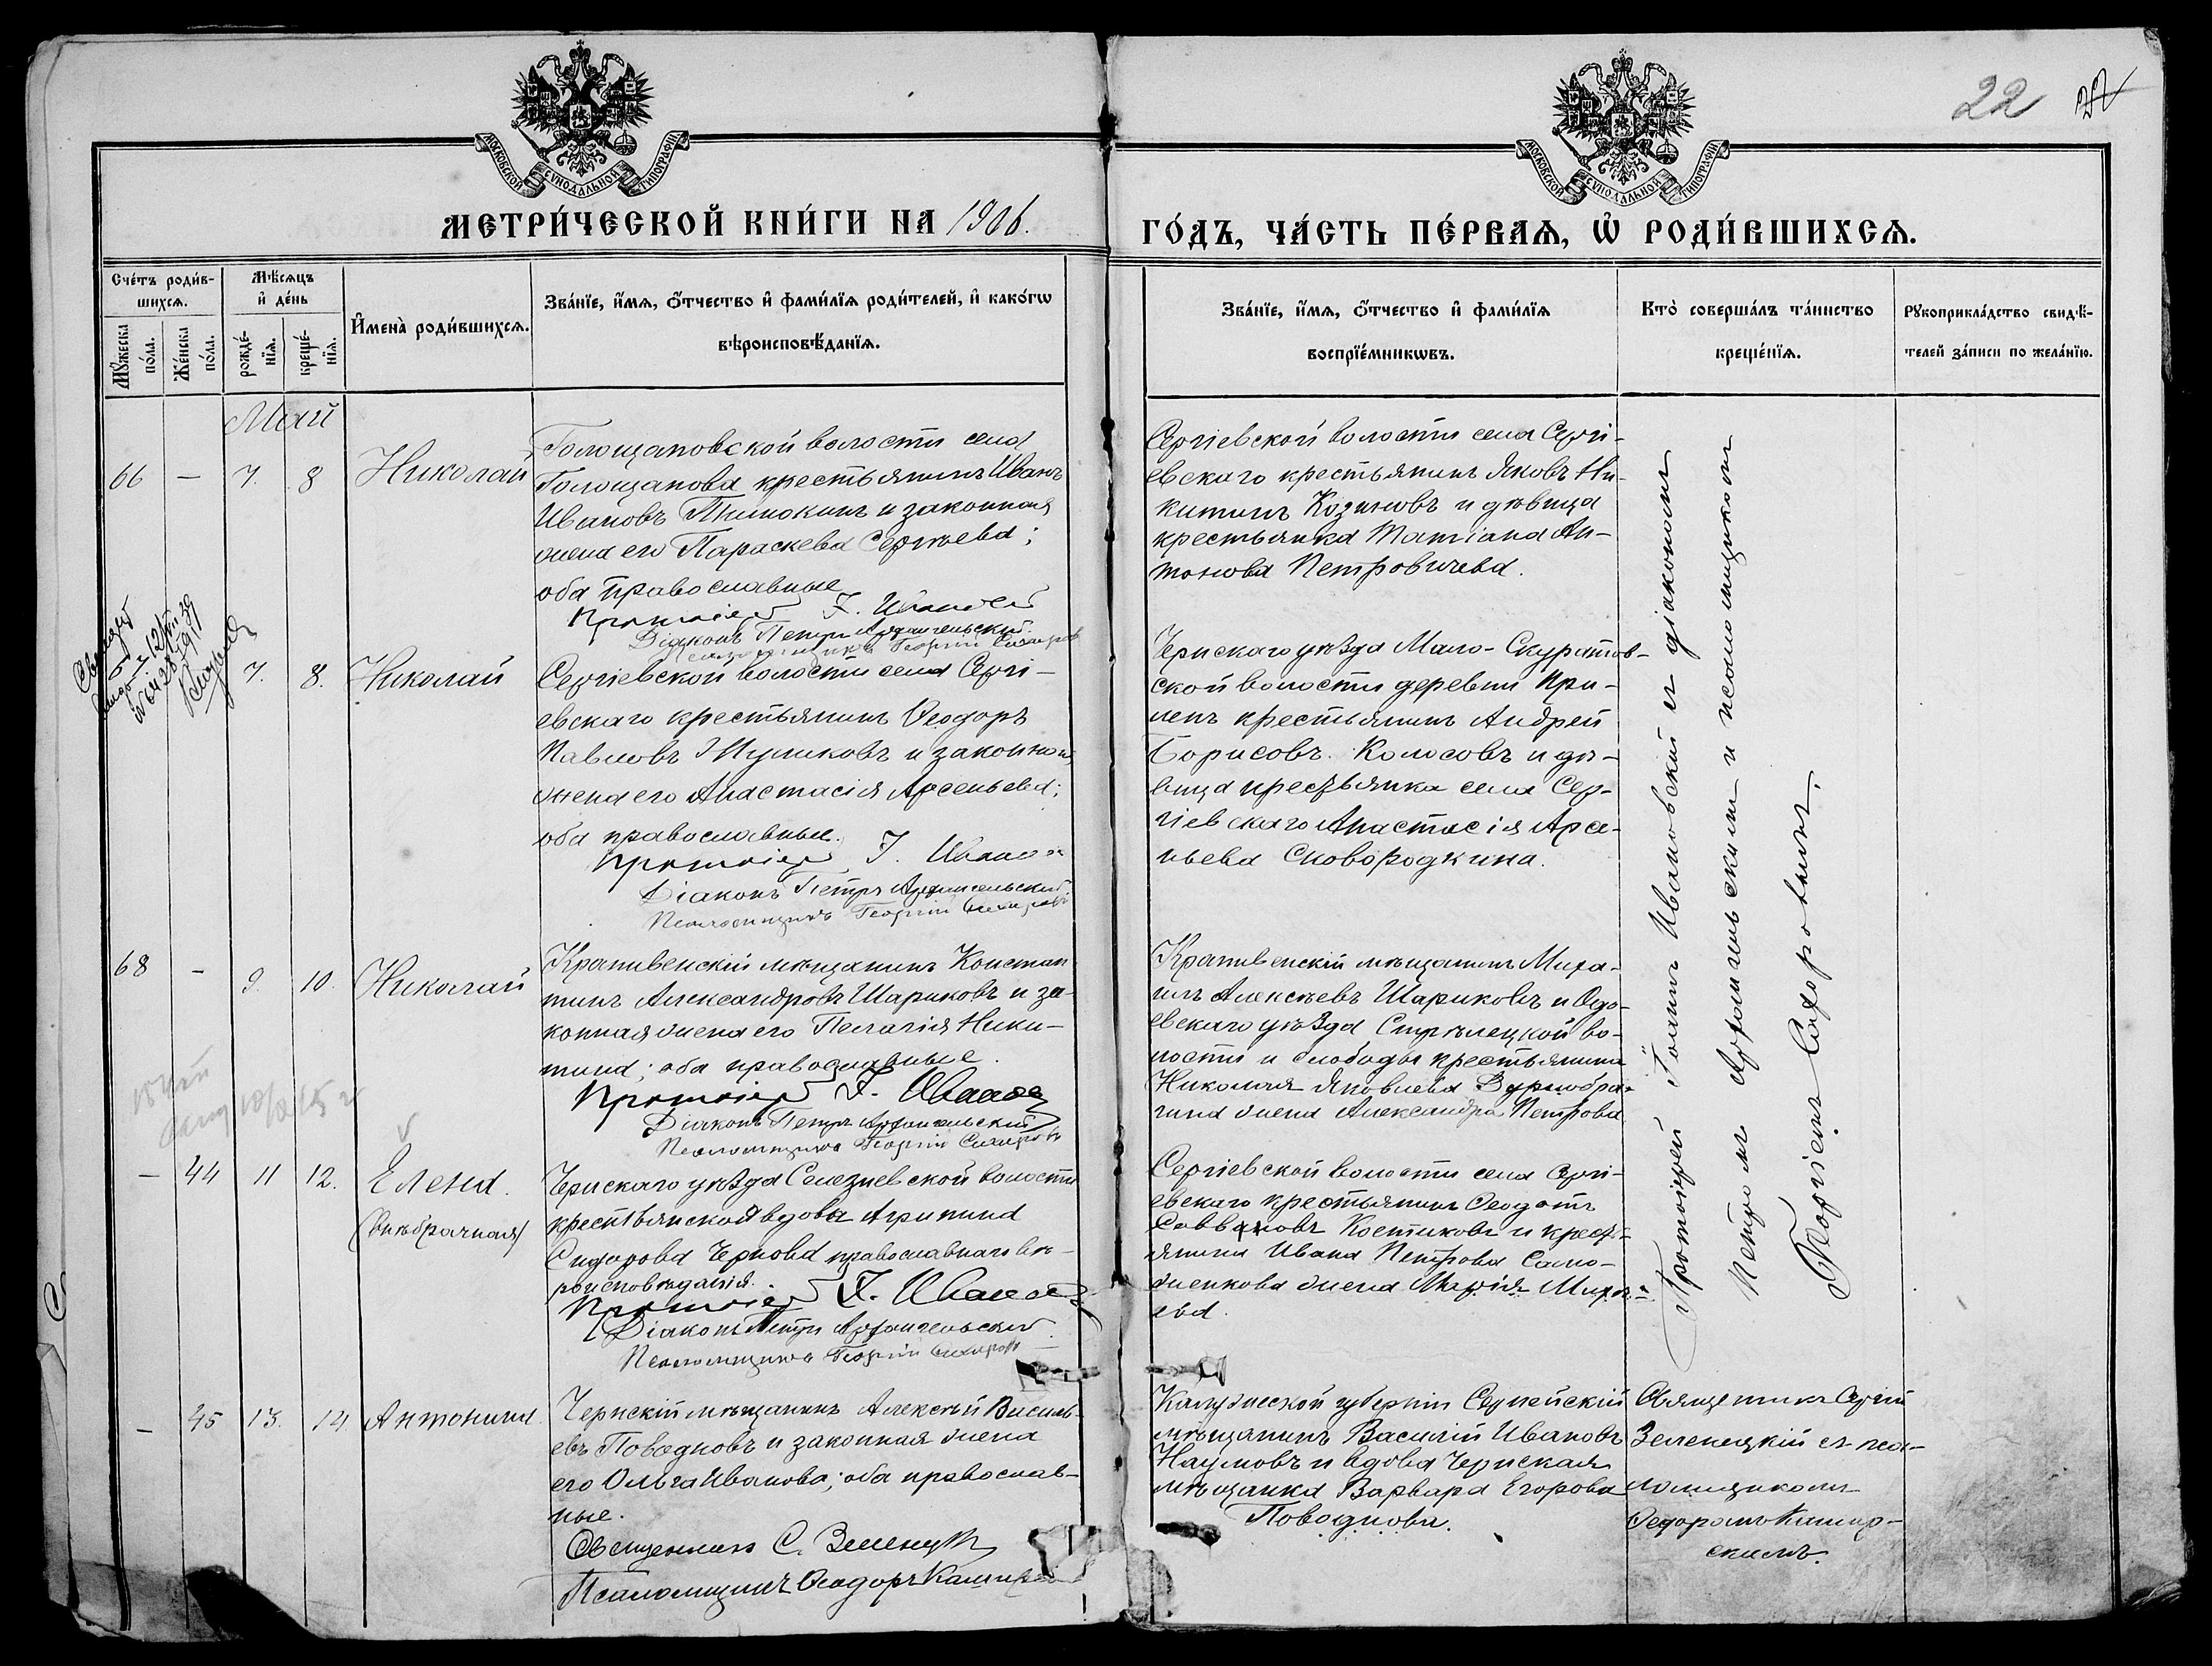 22
МОСКОВСКОЙ СУНОДАЛЬНОЙ ТИПОГРАФІИ
МОСКОВСКОЙ СУНОДАЛЬНОЙ ТИПОГРАФІИ
МЕТРИ́ЧЕСКОЙ КНИ́ГИ НА 1906.
ГО́ДЪ, ЧА́СТЬ ПЕ́РВАѦ, Ѡ҆ РОДИ́ВШИХСѦ.
Сче́тъ роди́в-
шихсѧ.
Мꙋ́жеска
по́ла.
Же́нска
по́ла.
Мѣ́сѧцъ
и҆ де́нь
рожде́-
нїѧ.
креще́-
нїѧ.
И҆мена̀ роди́вшихсѧ.
Зва́нїе, и҆́мѧ, ѻ҆́тчество и҆ фами́лїѧ роди́телей, и҆ како́гѡ
вѣроисповѣ́данїѧ.
Зва́нїе, и҆́мѧ, ѻ҆́тчество и҆ фами́лїѧ
воспрїе́мникѡвъ.
Кто̀ соверша́лъ та́инство
креще́нїѧ.
Рꙋкоприкла́дство свидѣ́-
телей за́писи по жела́нїю.
Май
66 — 7. 8 Николай
Голощаповской волости села
Голощапова крестьянинъ Иванъ
Ивановъ и законная
жена его Параскева Сергѣева;
оба православные
Протоіерей І. Ивановскій
Діаконъ Петръ Архангельскій.
Псаломщикъ Георгій Сахаровъ
Сергіевской волости села Сергі-
евскаго крестьянинъ Яковъ Ни-
китинъ Козиновъ и дѣвица
крестьянка Татіана Ан-
тонова Петровичева.
7. 8. Николай
Сергіевской волости села Сергі-
евскаго крестьянинъ Ѳеодоръ
Павловъ Жуликовъ и законная
жена его Анастасія Арсеньева;
оба православные.
Протоіерей І. Ивановскій
Діаконъ Петръ Архангельскій
Псаломщикъ Георгій Сахаровъ
Чернскаго уѣзда Мало-Скуратов-
ской волости деревни При-
лепъ крестьянинъ Андрей
Борисовъ Колосовъ и дѣ-
вица крестьянка села Сер-
гіевскаго Анастасія Арсе-
ньева Сковородкина.
68 - 9. 10. Николай
Крапивенскій мѣщанинъ Констан-
тинъ Александровъ Шариковъ и за-
конная жена его Пелагія Ники-
тина; оба православные.
Протоіерей І. Ивановскій
Діаконъ Петръ Архангельскій
Псаломщикъ Георгій Сахаровъ
Крапивенскій мѣщанинъ Миха-
илъ Алексѣевъ Шариковъ и Одо-
евскаго уѣзда Стрѣлецкой во-
лости и слободы крестьянина
Николая Яковлева
жена Александра Петрова
— 44 11 12. Елена.
(внѣбрачная)
Чернскаго уѣзда Селезневской волости
крестьянской вдовы Агрипина
Сидорова Чернова православнаго вѣ-
роисповѣданія.
Протоіерей І. Ивановскій
Діаконъ Петръ Архангельскій
Псаломщикъ Георгій Сахаровъ
Сергіевской волости села Сергі-
евскаго крестьянинъ Ѳеодотъ
Саввановъ Костиковъ и кресть-
янина Ивана Петрова Само-
жена Марія Михе-
ева.
Протоіерей Іоаннъ Ивановскій съ діакономъ
Петромъ Архангельскимъ и псаломщикомъ
Георгіемъ Сахаровымъ.
— 45 13. 14 Антонина.
Чернскій мѣщанинъ Алексѣй Василь-
евъ Поводновъ и законная жена
его Ольга Иванова; оба православ-
ные.
Священникъ С. Зеленецкій
Псаломщикъ Ѳеодоръ Каширскій
Калужской губерніи Серпейскій
мѣщанинъ Василій Ивановъ
Наумовъ и вдова Чернская
мѣщанка Варвара Егорова
Поводнова.
Священникъ Сергій
Зеленецкій съ пса-
ломщикомъ
Ѳеодоромъ Кашир-
скимъ.